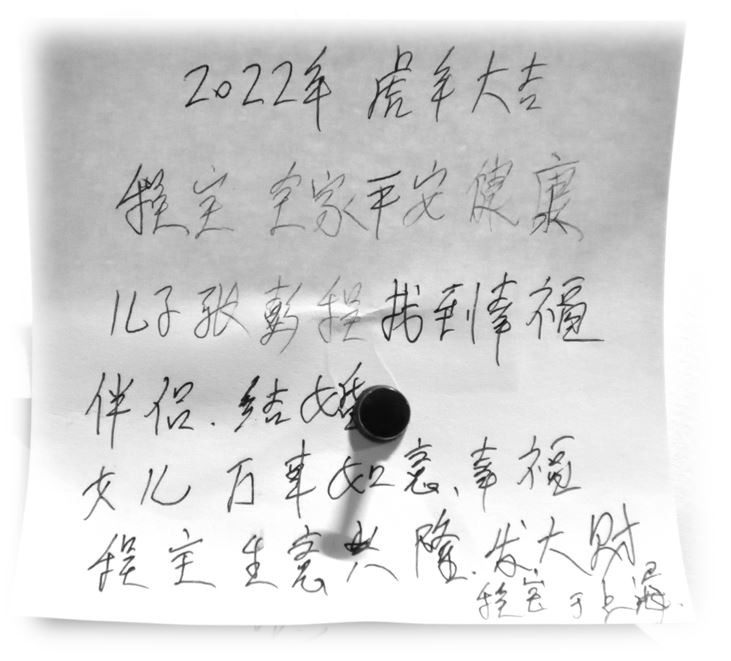 2022年 虎年大吉
全家平安健康
儿子张彭程找到幸福
伴侣.结婚
女儿 万事如意、幸福
生意兴隆.发大财
于上海.